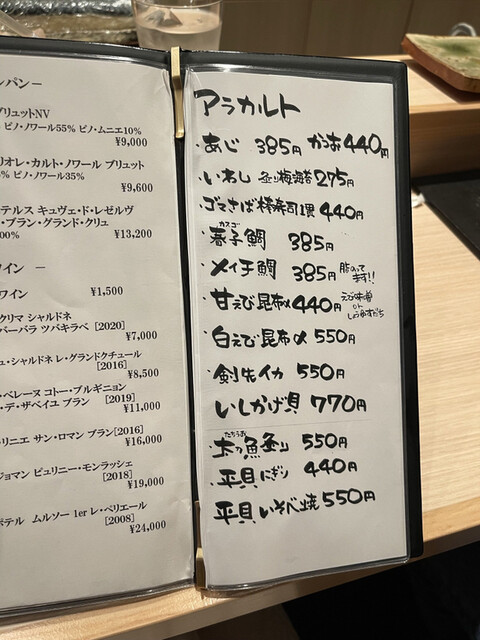 ンパン－
ブリュットNV
ピノ・ノワール55% ピノ・ムニエ10%
¥9,000
リオレ・カルト・ノワール ブリュット
% ピノ・ノワール35%
¥9,600
テルス キュヴェ・ド・レゼルヴ
・ブラン・グランド・クリュ
00%
¥13,200
ワイン －
ワイン ¥1,500
クリマ シャルドネ
バーバラ ツバキラベ [2020]
¥7,000
ュ・シャルドネ レ・グランドクチュール
[2016]
¥8,500
・ベレーヌ コトー・ブルギニョン
・デ・ザベイユ ブラン [2019]
¥11,000
リニエ サン・ロマン ブラン[2016]
¥16,000
ジョマン ピュリニー・モンラッシェ
[2018]
¥19,000
ポテル ムルソー 1er レ・ペリエール
[2008]
¥24,000
アラカルト
・あじ 385円 かつお 440円
・いわし 炙り梅海苔 275円
・ゴマさば棒寿司1貫 440円
カスゴ
・春子鯛 385円
・メイチ鯛 385円 脂のってます!!
・甘えび昆布〆 440円 えび味噌 or しょうゆすだち
・白えび昆布〆 550円
・剣先イカ 550円
・いしかげ貝 770円
たちうお
・太刀魚炙り 550円
・平貝にぎり 440円
・平貝いそべ焼 550円